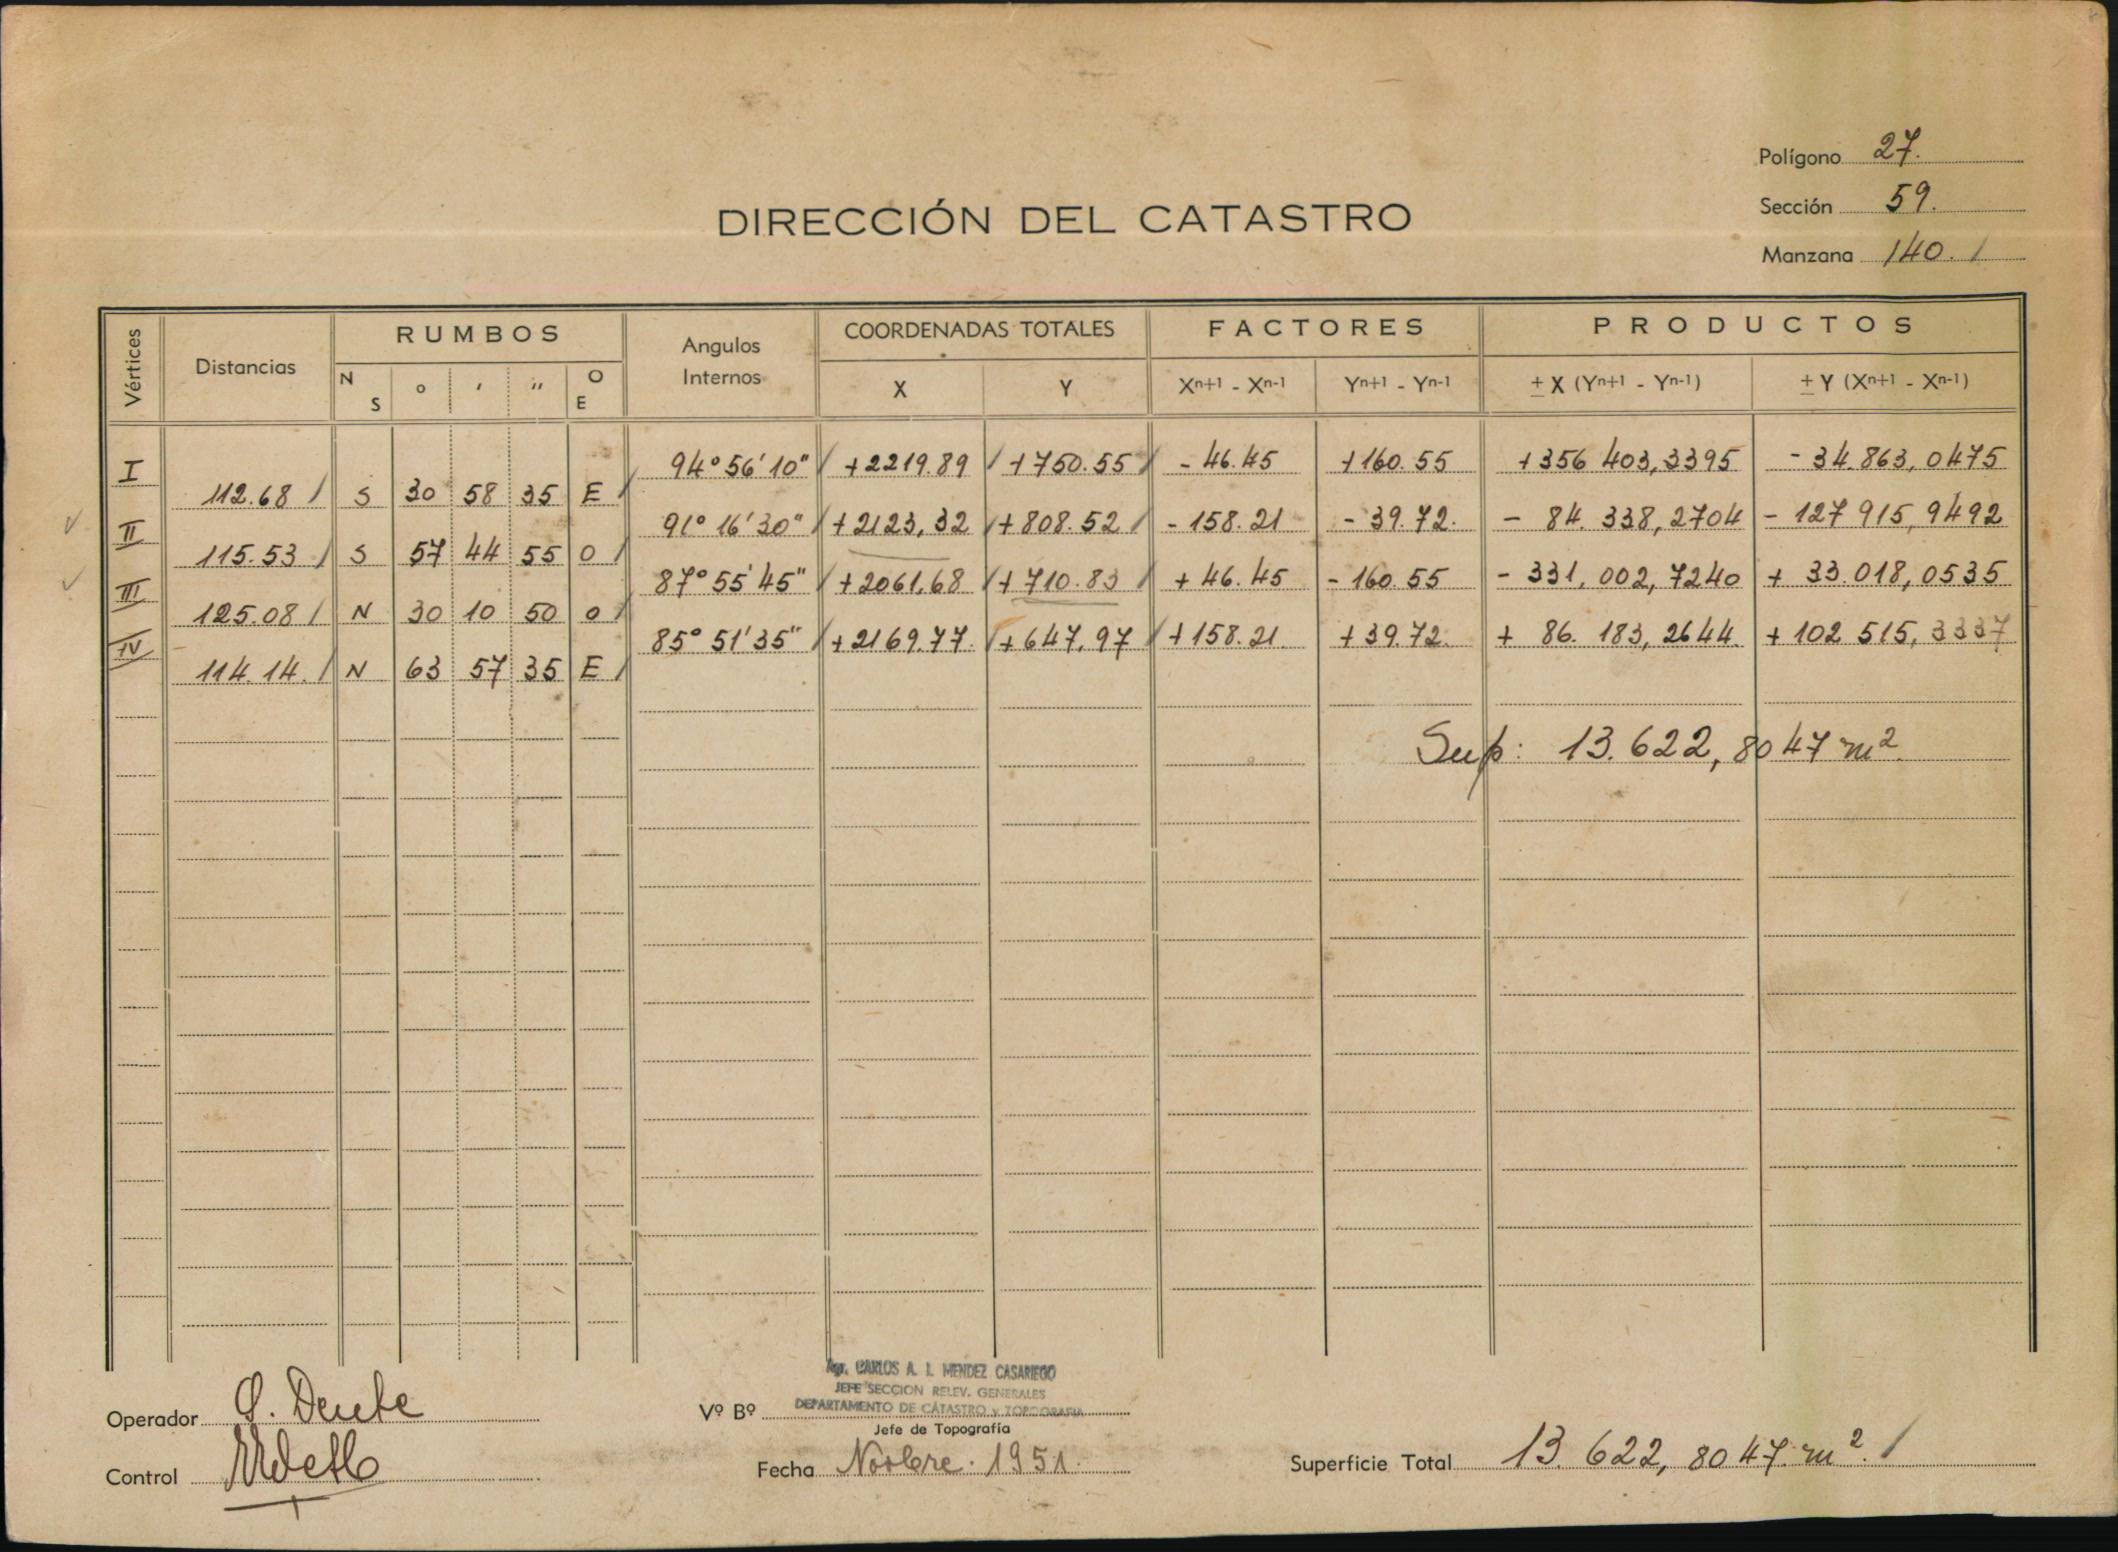 Polígono 27.
Sección 59.
Manzana 140.
DIRECCIÓN DEL CATASTRO
Vértices Distancias RUMBOS Angulos Internos COORDENADAS TOTALES FACTORES PRODUCTOS
N S ° ' " O E X Y Xn+1 - Xn-1 Yn+1 - Yn-1 ± X (Yn+1 - Yn-1) ± Y (Xn+1 - Xn-1)
I 94° 56' 10" +2219.89 +750.55 - 46.45 +160.55 +356 403,3395 - 34.863,0475
112.68 S 30 58 35 E
II 91° 16' 30" +2123,32 +808.52 - 158.21 - 39.72. - 84. 338,2704 - 127 915,9492
115.53 S 57 44 55 O
III 87° 55' 45" +2061.68 +710.83 + 46.45 - 160.55 - 331,002,7240 + 33.018,0535
125.08 N 30 10 50 O
IV 85° 51' 35" +2169.77. +647,97 +158.21. +39.72. + 86. 183,2644. +102 515,3337
114.14. N 63 57 35 E
Sup: 13.622,8047 m2.
Agr. CARLOS A. I. MENDEZ CASARIEGO
JEFE SECCION RELEV. GENERALES
DEPARTAMENTO DE CATASTRO y TOPOGRAFIA
Operador Vº Bº
Jefe de Topografía
Control Fecha Novbre. 1951. Superficie Total 13.622,8047 m2.